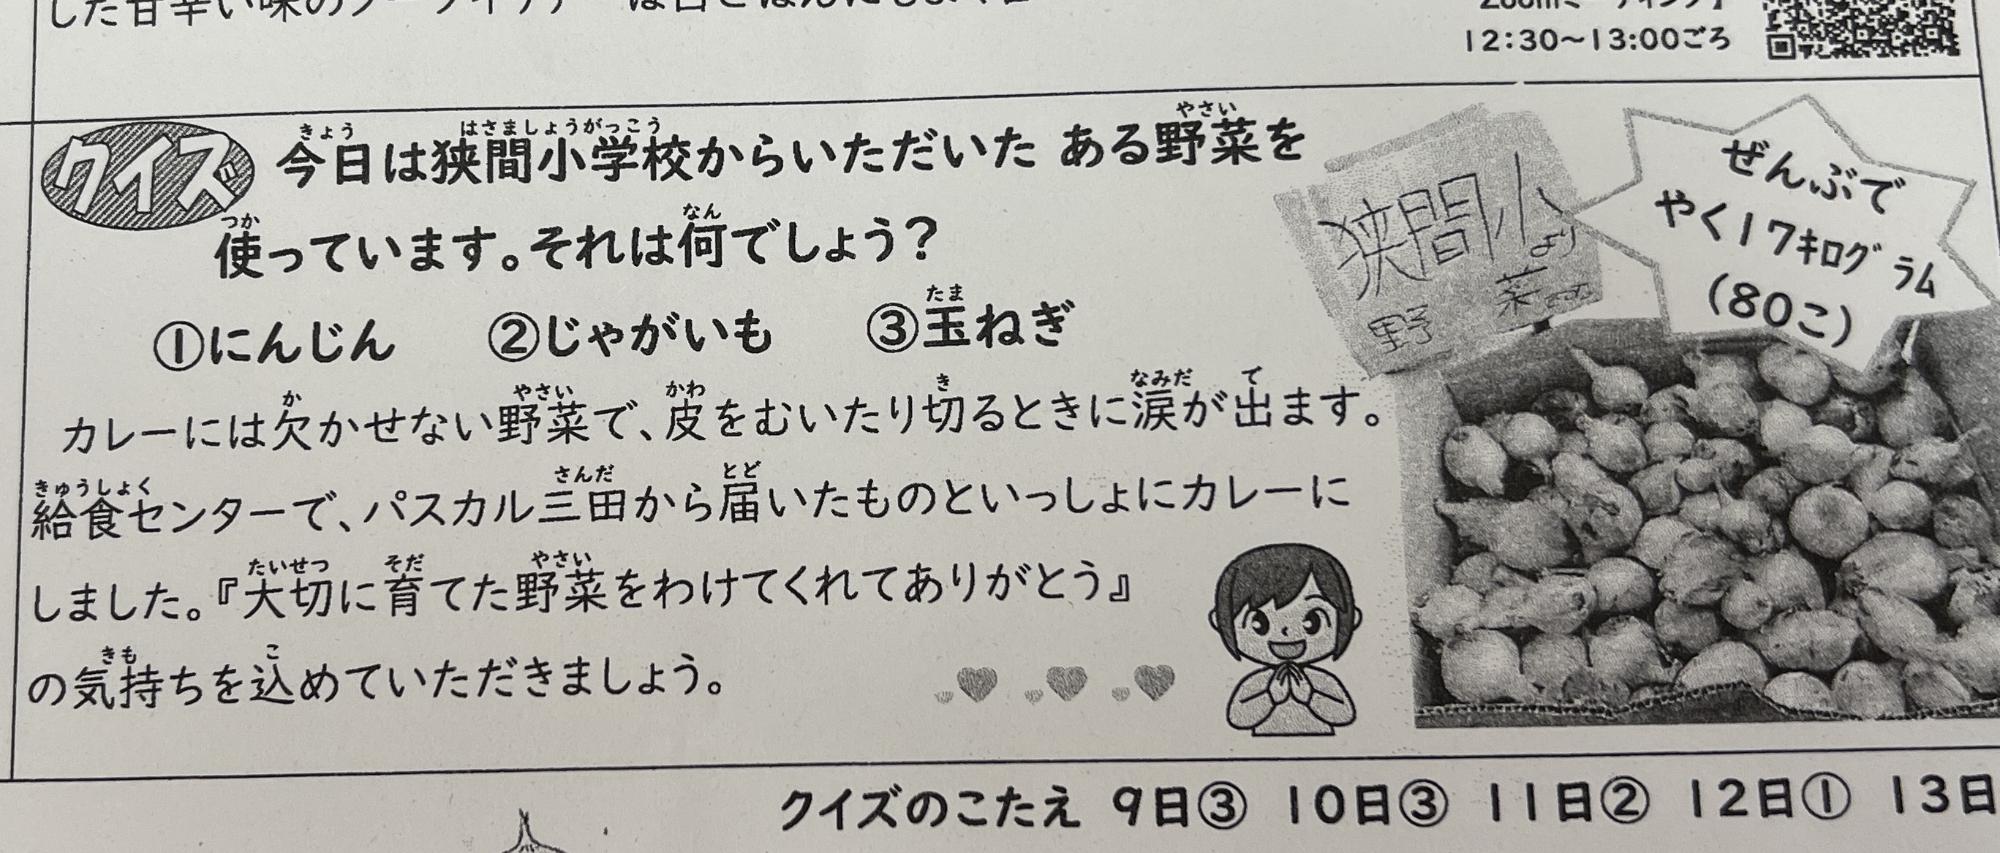 Zoomミーティング】
12:30～13:00ごろ
クイズ
今日は狭間小学校からいただいた ある野菜を
使っています。それは何でしょう？
①にんじん ②じゃがいも ③玉ねぎ
カレーには欠かせない野菜で、皮をむいたり切るときに涙が出ます。
給食センターで、パスカル三田から届いたものといっしょにカレーに
しました。『大切に育てた野菜をわけてくれてありがとう』
の気持ちを込めていただきましょう。
狭間小より
野菜
ぜんぶで
やく17ｷﾛｸﾞﾗﾑ
(80こ)
クイズのこたえ 9日③ 10日③ 11日② 12日① 13日